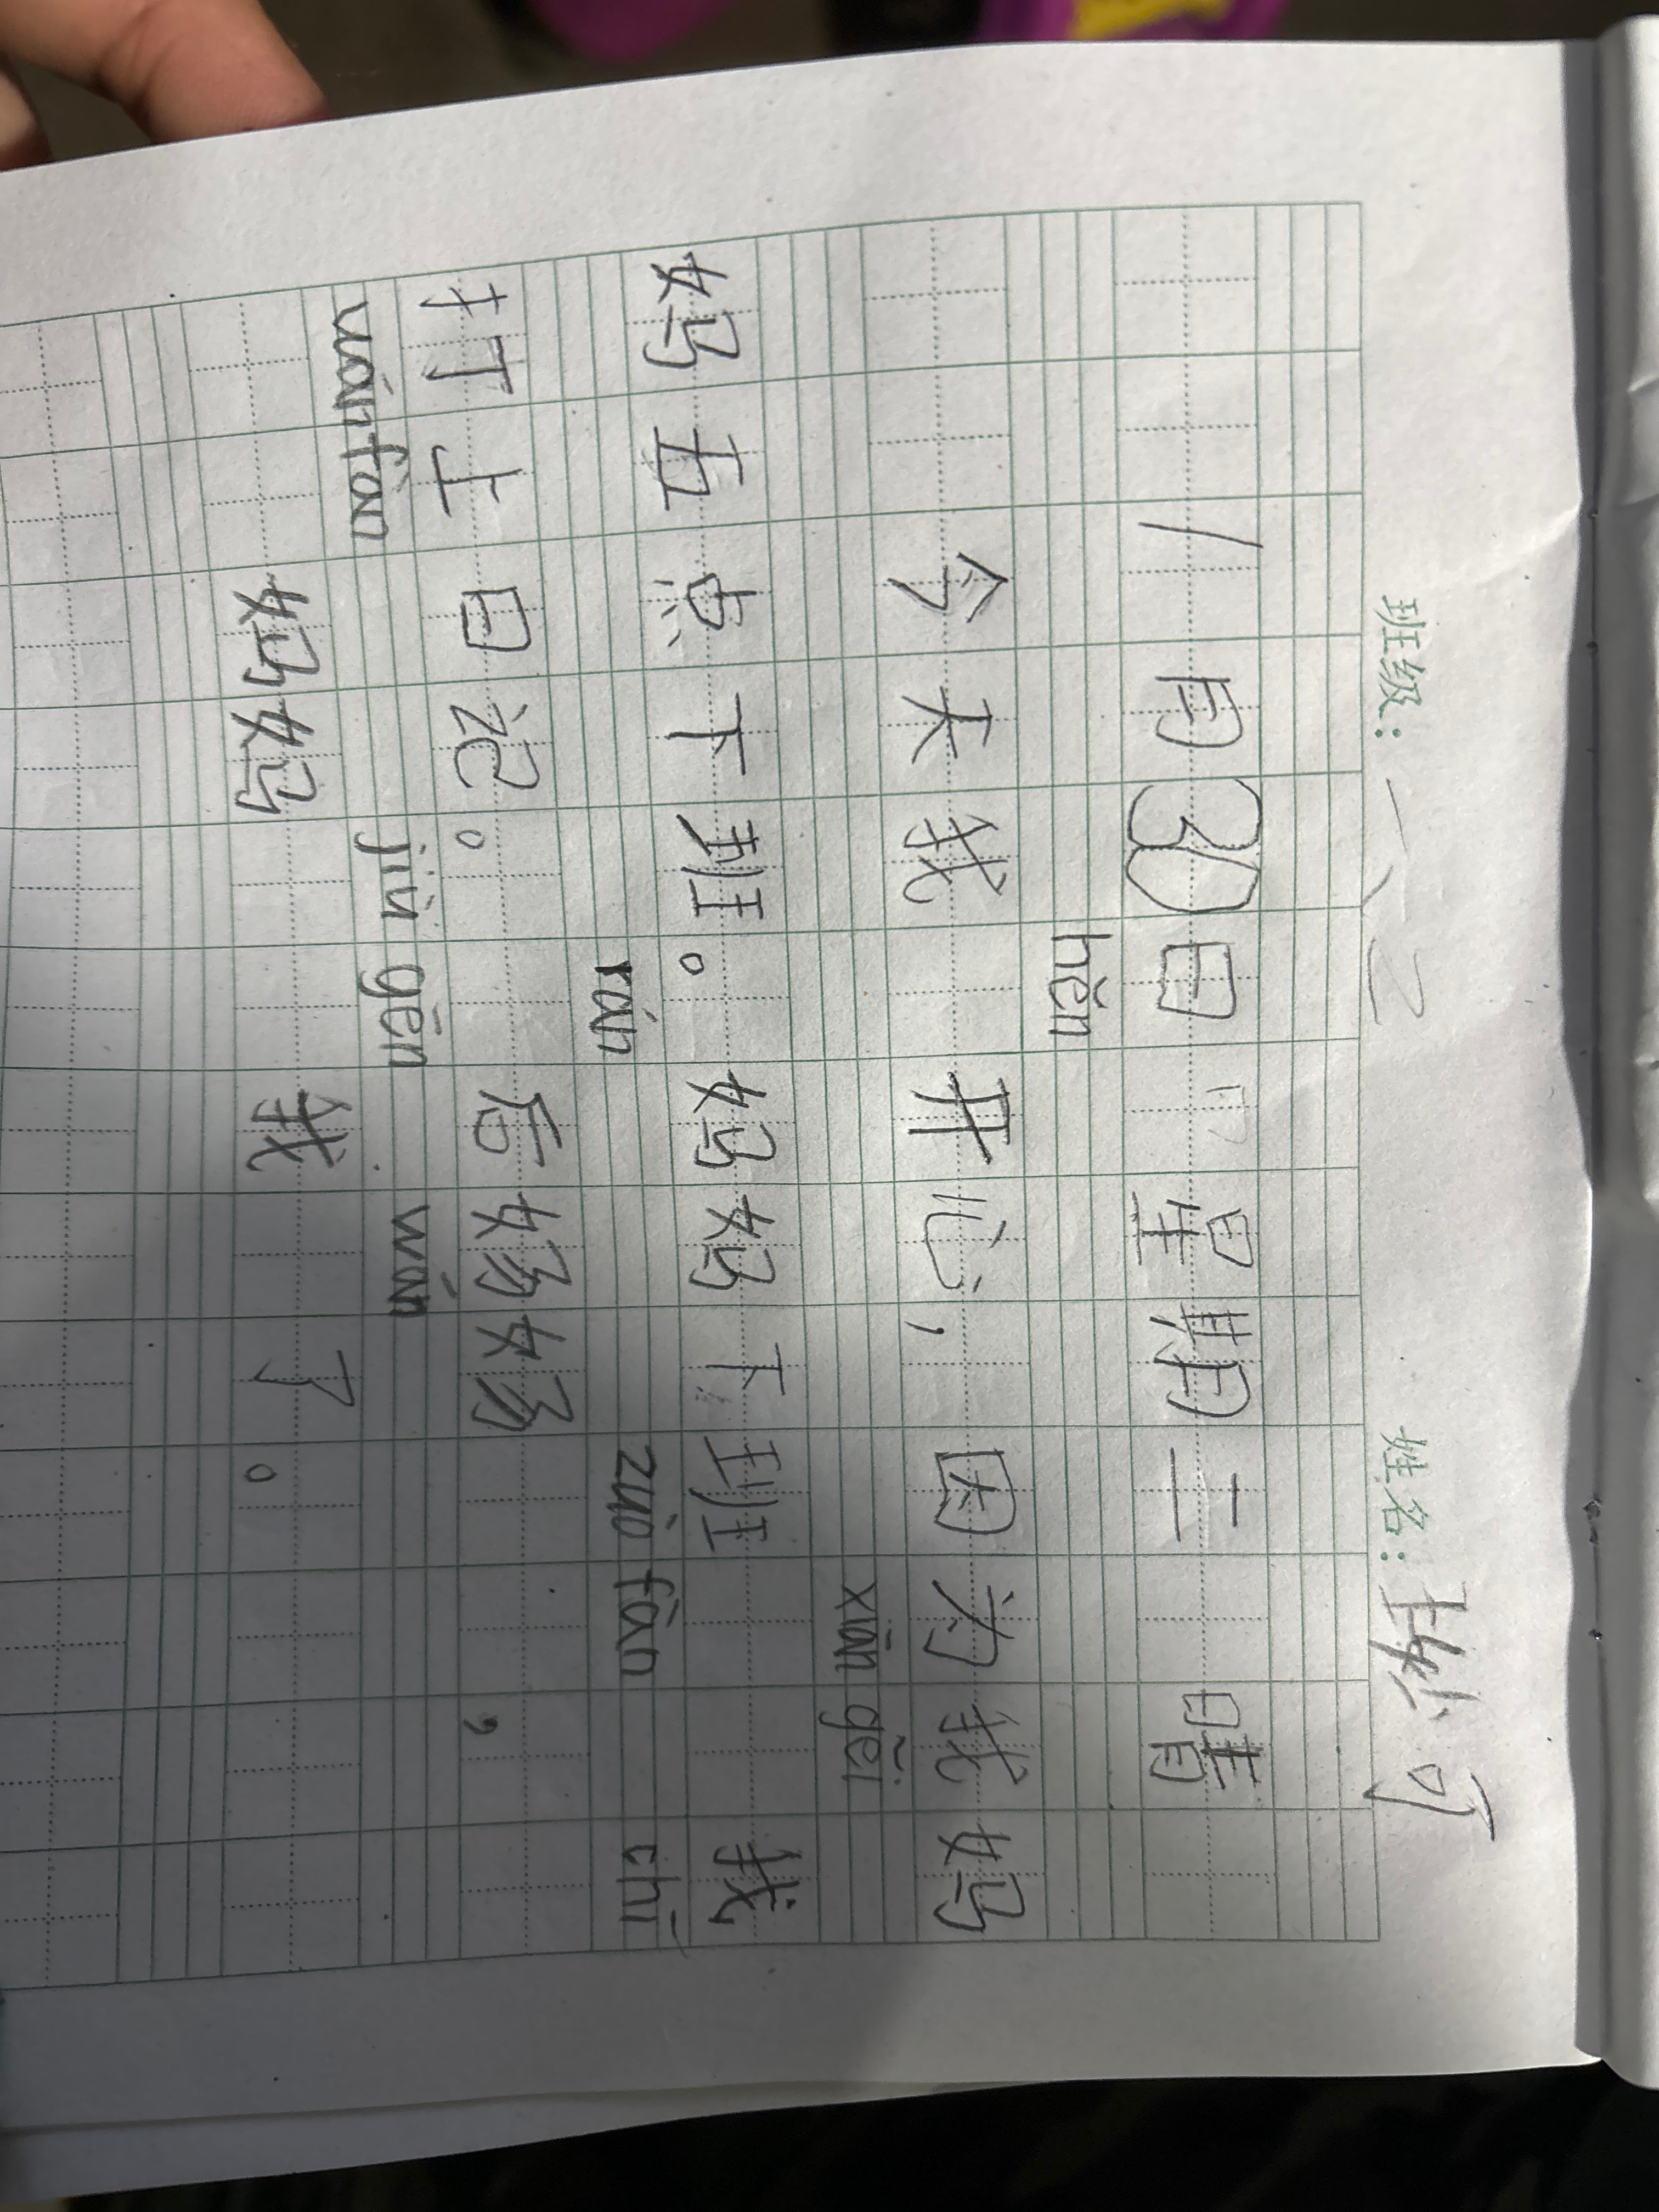 班级：一、2 姓名：可
1月30日 星期二 晴
hěn
今天我 开心，因为我妈
xiān gěi
妈五点下班。妈妈下班 我
rán zuò fàn chī
打上日记。 后奶奶 ，
wán fàn jiù gēn wán
妈妈 我 了。